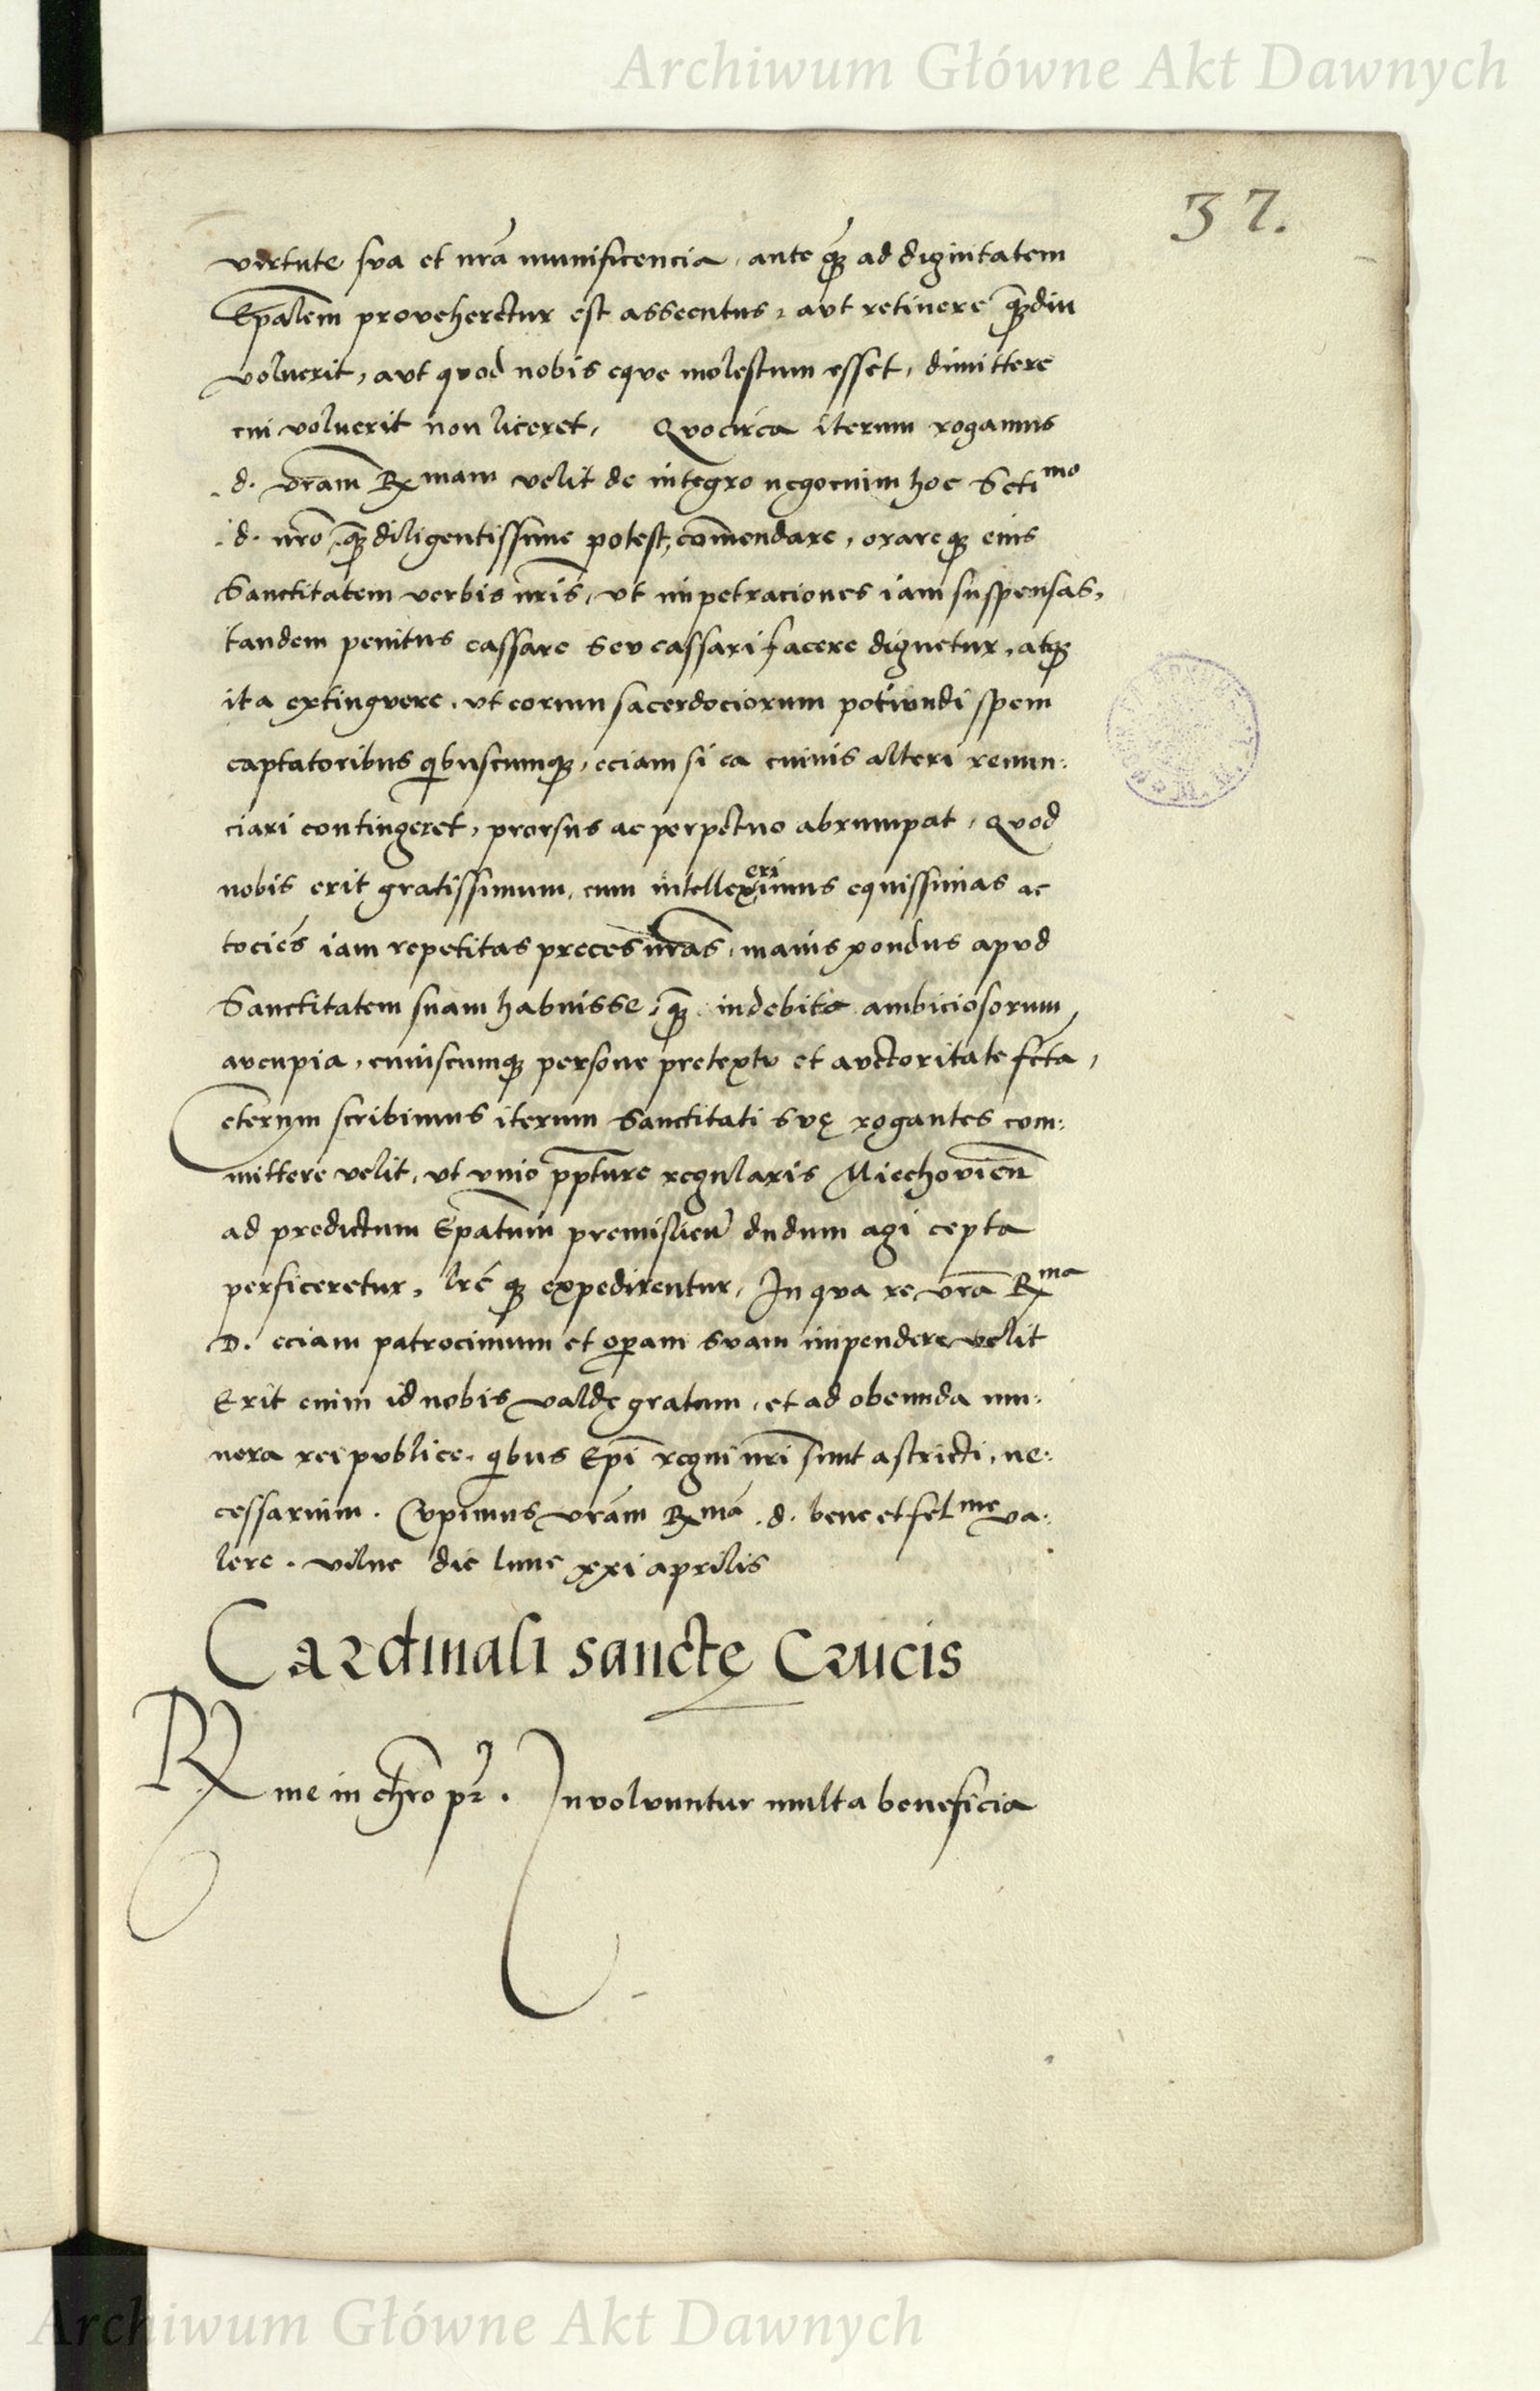 Archiwum Główne Akt Dawnych
37.
virtute sva et nrã munificencia, ante qȝ ad dignitatem
Epalem proveheretur est assecutus, avt retinere qȝdiu
voluerit, avt qvod nobis eqve molestum esset, dimittere
cui voluerit non liceret, Qvocirca iterum rogamus
.d. vram Rmam velit de integro negocium hoc Scti mo
.d. nro qȝ diligentissime potest, comendare, orareqȝ eius
Sanctitatem verbis nris, vt impetraciones iam suspensas,
tandem penitus cassare sev cassari facere dignetur, atqȝ
ita extingvere, vt eorum sacerdociorum potiundi spem
captatoribus qibuscumqȝ, eciam si ea cuiuis alteri renun:
ciari contingeret, prorsus ac perpetuo abrumpat, Qvod
nobis erit gratissimum, cum intellexerimus equissimas ac
tocies iam repetitas preces nras, maius pondus apvd
Sanctitatem suam habuisse, qȝ indebita ambiciosorum
avcupia, cuiuscumqȝ persone pretextv et avctoritate fcta,
Ceterum scribimus iterum Sanctitati svę rogantes com:
mittere velit, vt vnio ppture regularis Miechovien
ad predictum Epatum premislien dudum agi cepta
perficeretur, lre qȝ expedirentur, In qva re vra R ma
D. eciam patrocinium et opam svam impendere velit
Erit enim id nobis valde gratum, et ad obeunda mu:
nera rei pvblice, qibus Epi regni nri sunt astricti, ne:
cessarium. Cvpimus vram R mã .d. bene et fel me va:
lere. vilne die lune xxi aprilis
Cardinali sancte Crucis
R me in chro pr. Involvuntur multa beneficia
Archiwum Główne Akt Dawnych